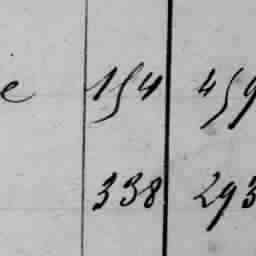 e 154 459
338 293